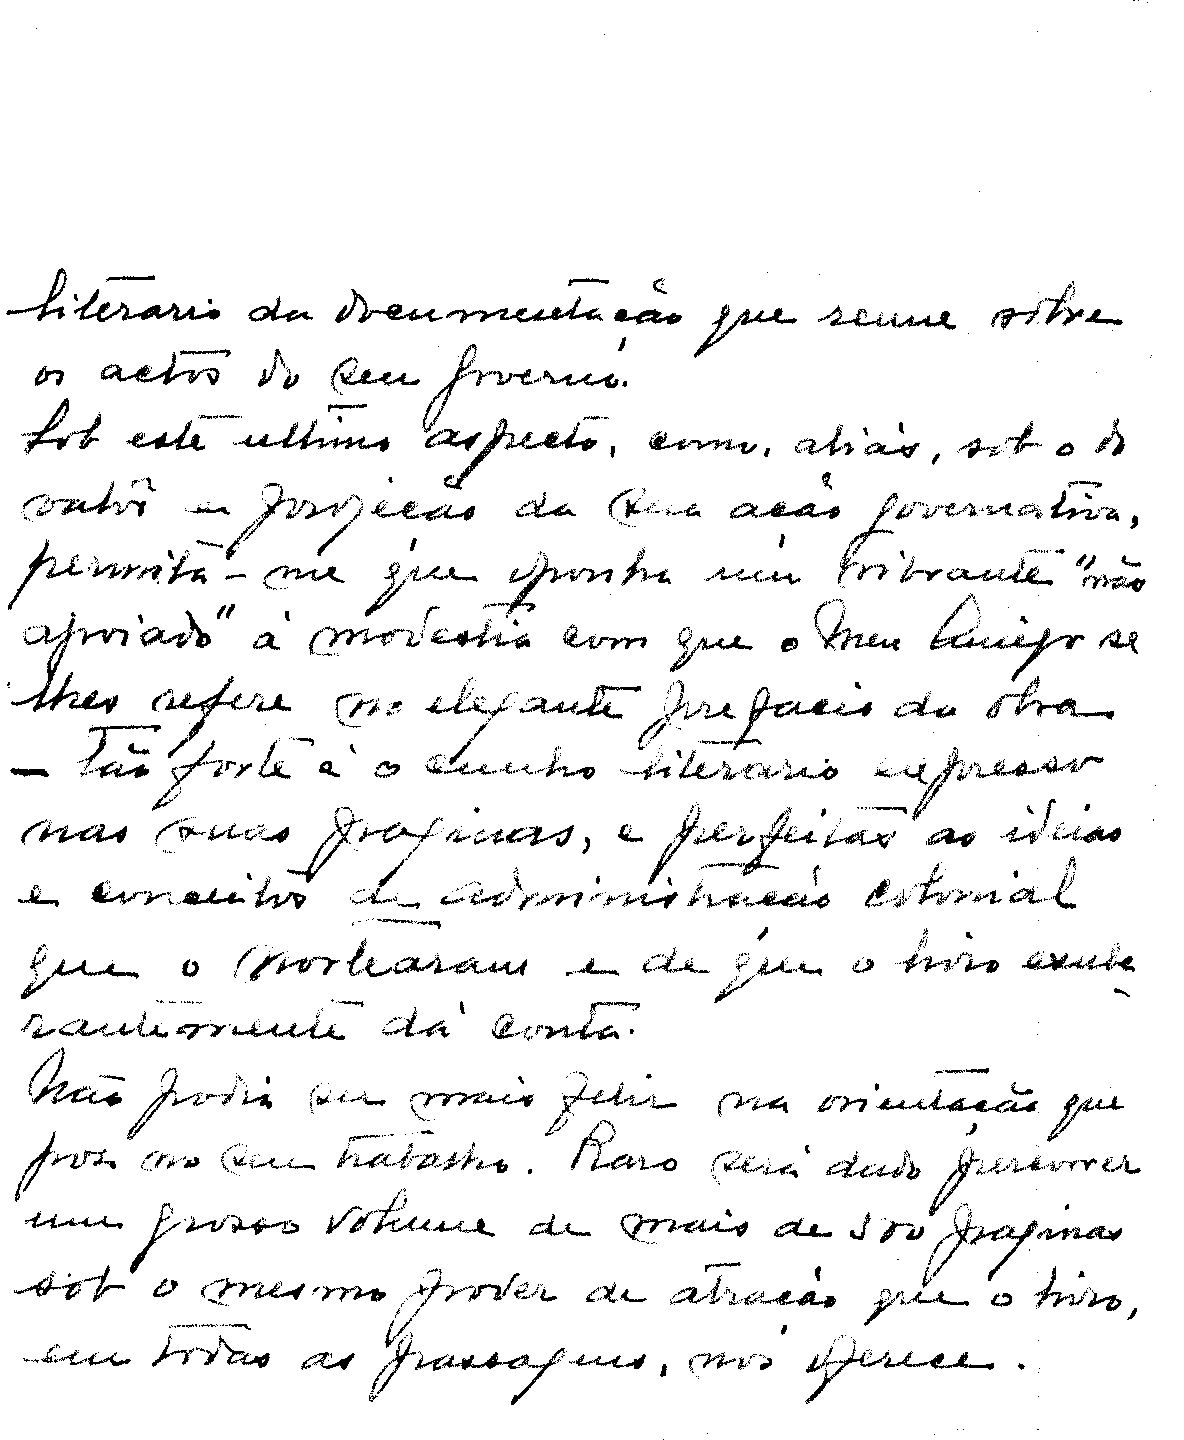 literario da documentação que reune sôbre
os actos do seu Governo.
Sob este ultimo aspecto, como, aliás, sob o do
valôr e projecção da sua acção governativa,
permita-me que oponha um vibrante "não
apoiado" à modestia com que o Meu Amigo se
lhes refere no elegante prefacio da obra
— tão forte é o cunho literario expresso
nas suas paginas, e perfeitas as ideias
e conceitos de administração colonial
que o nortearam e de que o livro exube
rantemente dá conta.
Não podia ser mais feliz na orientação que
pos no seu trabalho. Raro será dado percorrer
um grosso volume de mais de 500 paginas
sob o mesmo poder de atracção que o livro,
em todas as passagens, nos oferece.